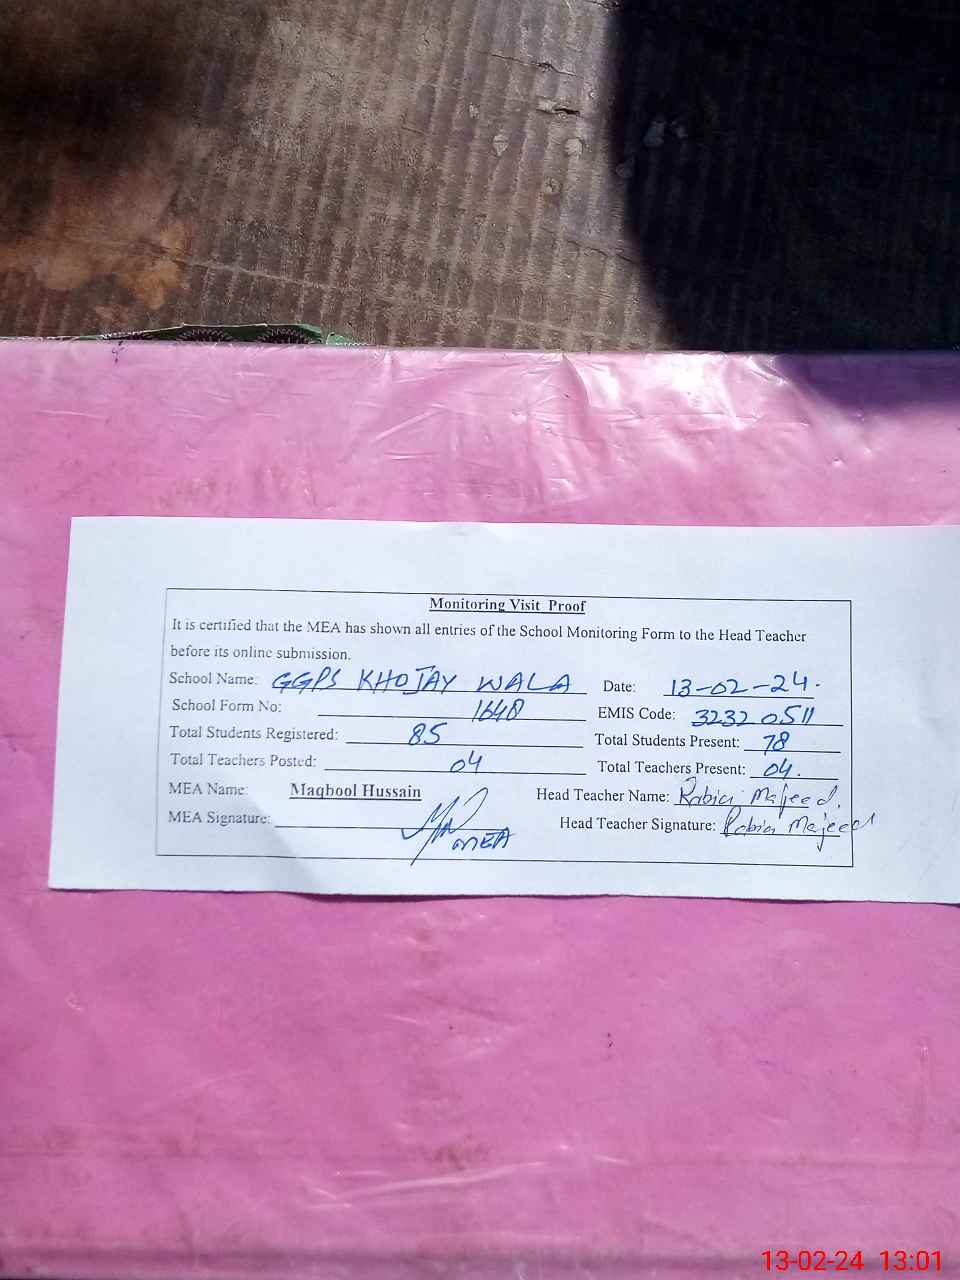 Monitoring Visit Proof
It is certified that the MEA has shown all entries of the School Monitoring Form to the Head Teacher
before its online submission.
School Name: GGPS KHOJAY WALA Date: 13-02-24.
School Form No: 1648 EMIS Code: 32320511
Total Students Registered: 85 Total Students Present: 78
Total Teachers Posted: 04 Total Teachers Present: 04.
MEA Name: Maqbool Hussain Head Teacher Name: Rabia Majeed.
MEA Signature: MEA Head Teacher Signature: Rabia Majeed
13-02-24 13:01